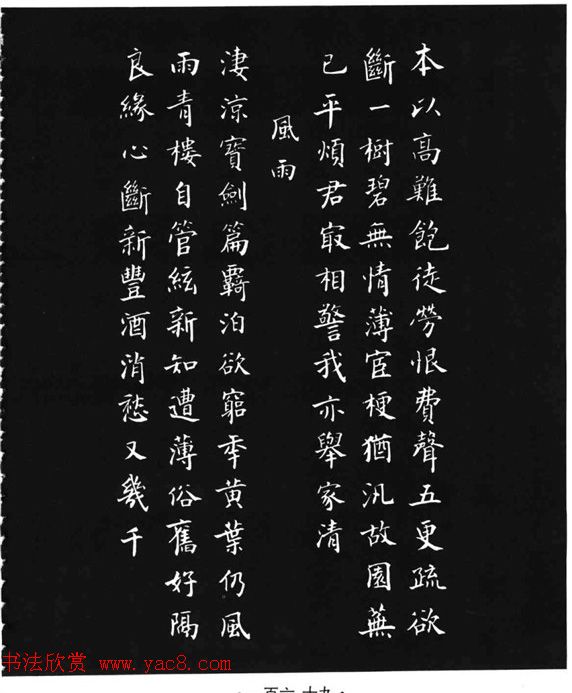 本以高難飽徒勞恨費聲五更疏欲
斷一樹碧無情薄宦梗猶汎故園蕪
已平煩君㝡相警我亦舉家清
風雨
淒涼寶劍篇羇泊欲窮秊黃葉仍風
雨青樓自管絃新知遭薄俗舊好隔
良緣心斷新豐酒消愁又幾千
书法欣赏 www.yac8.com
百六十九